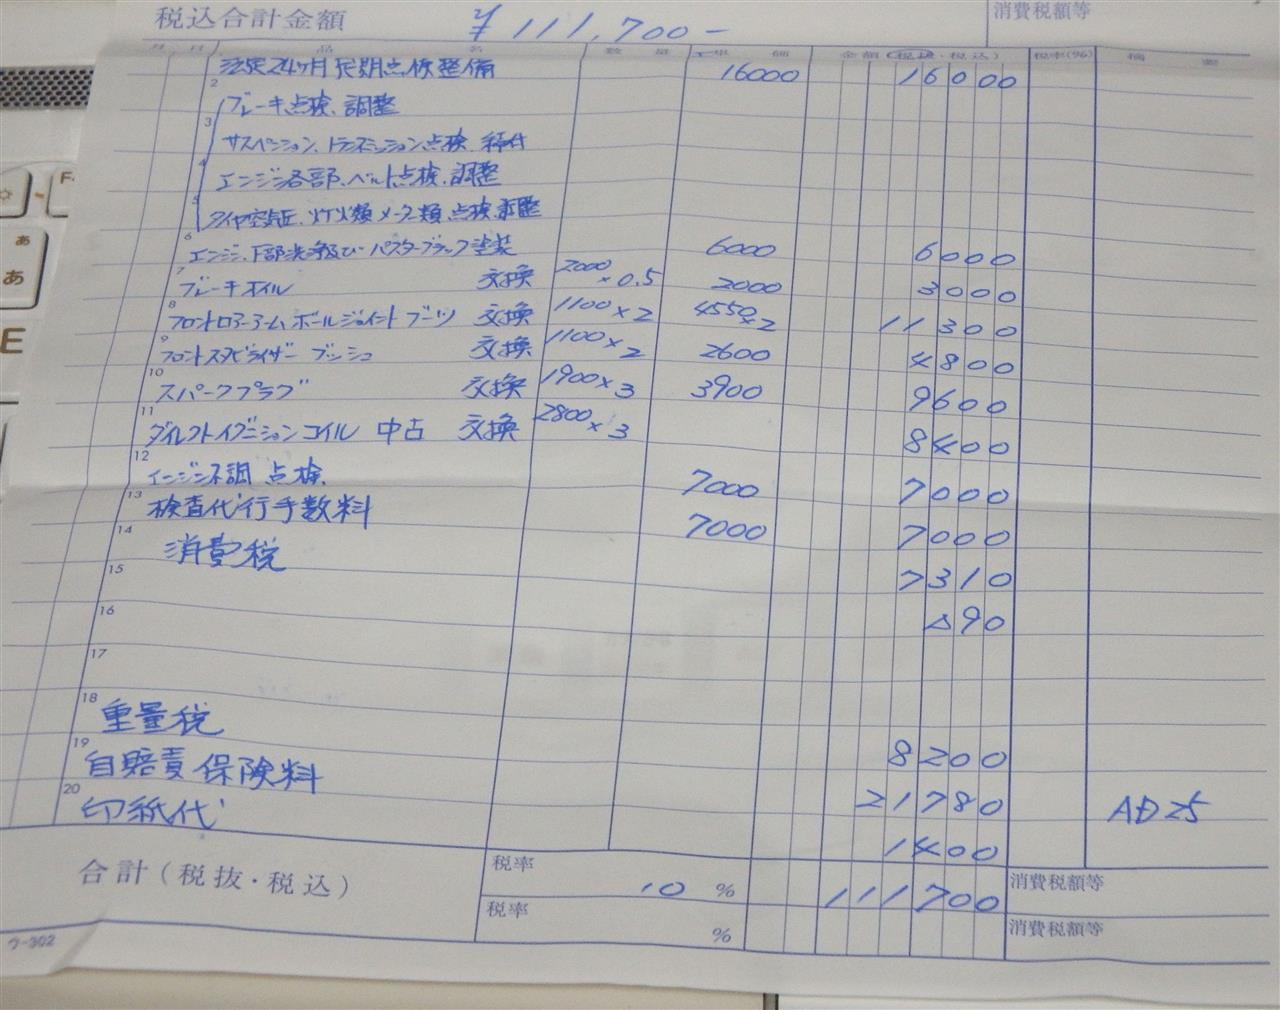 税込合計金額 ¥111,700- 消費税額等
月 日 品 名 数 量 単 価 金 額 (税抜・税込) 税率(%) 摘 要
法定24ヶ月定期点検整備 16000 16000
2 ブレーキ点検、調整
3 サスペンション、トランスミッション点検、締付
4 エンジン各部、ベルト点検、調整
5 タイヤ空気圧、灯火類メーター類、点検、調整
6 エンジン、下部洗浄及びパスターブラック塗装 6000 6000
7 ブレーキオイル 交換 2000×0.5 2000 3000
8 フロントロアーアームボールジョイントブーツ 交換 1100×2 4550×2 11300
9 フロントスタビライザーブッシュ 交換 1100×2 2600 4800
10 スパークプラグ 交換 1900×3 3900 9600
11 ダイレクトイグニションコイル 中古 交換 2800×3 8400
12 エンジン不調 点検 7000 7000
13 検査代行手数料 7000 7000
14 消費税 7310
15 △90
16
17
18 重量税 8200
19 自賠責保険料 21780 AD25
20 印紙代 1400
合計(税抜・税込) 税率 10 % 111700 消費税額等
税率 % 消費税額等
ウ-302
F
あ
あ
E